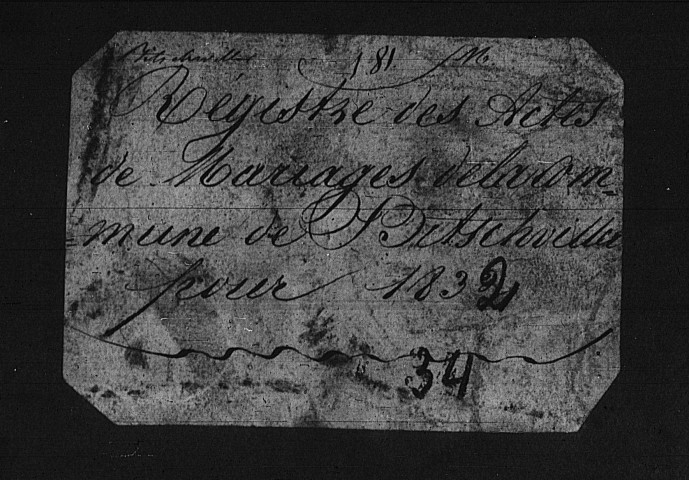 Bitschwiller 181 M.
Régistre des Actes
de Mariages de la Com-
-mune de Bitschviller
pour 1832
34